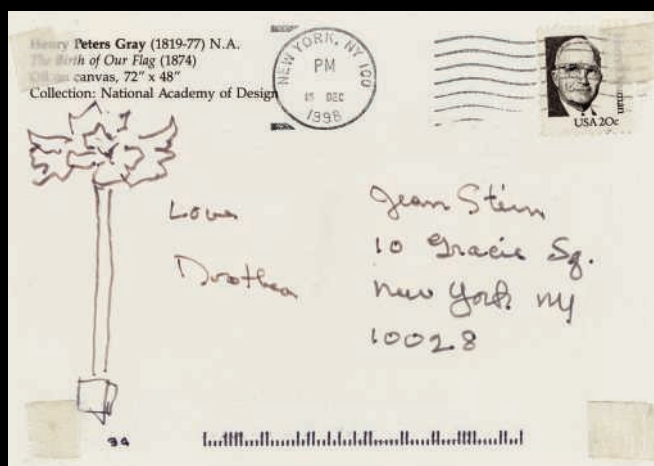 Henry Peters Gray (1819-77) N.A.
The Birth of Our Flag (1874)
Oil on canvas, 72" x 48"
Collection: National Academy of Design
NEW YORK, NY 100
PM
15 DEC
1998
USA 20c
Love
Dorothea
Jean Stein
10 Gracie Sq.
New York NY
10028